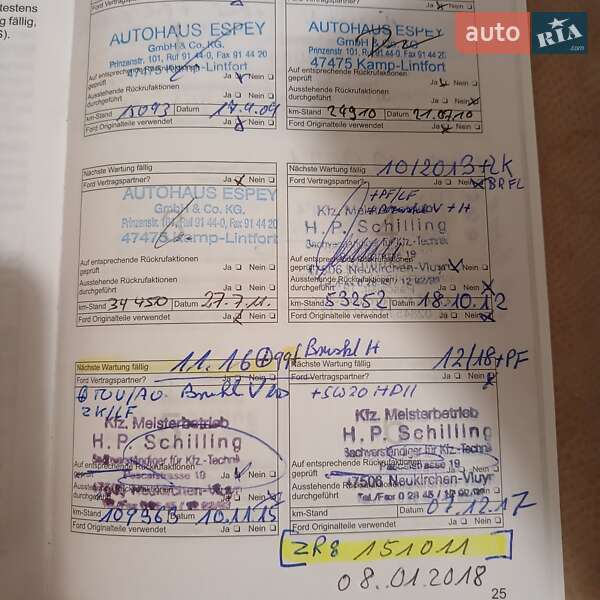 testens
g fällig,
S).
auto RIA .com
AUTOHAUS ESPEY
GmbH & Co. KG.
Prinzenstr. 101, Ruf 91 44-0, Fax 91 44 20
47475 Kamp-Lintfort
Auf entsprechende Rückrufaktionen
geprüft Ja Nein
Ausstehende Rückrufaktionen
durchgeführt Ja Nein
km-Stand 15093 Datum 17.9.09
Ford Originalteile verwendet Ja Nein
AUTOHAUS ESPEY
GmbH & Co. KG.
Prinzenstr. 101, Ruf 91 44-0, Fax 91 44 20
47475 Kamp-Lintfort
Auf entsprechende Rückrufaktionen
geprüft Ja Nein
Ausstehende Rückrufaktionen
durchgeführt Ja Nein
km-Stand 24910 Datum 21.07.10
Ford Originalteile verwendet Ja Nein
Nächste Wartung fällig
Ford Vertragspartner? Ja Nein
AUTOHAUS ESPEY
GmbH & Co. KG.
Prinzenstr. 101, Ruf 91 44-0, Fax 91 44 20
47475 Kamp-Lintfort
Auf entsprechende Rückrufaktionen
geprüft Ja Nein
Ausstehende Rückrufaktionen
durchgeführt Ja Nein
km-Stand 34450 Datum 27.7.11.
Ford Originalteile verwendet Ja Nein
Nächste Wartung fällig 10/2013+ZK
Ford Vertragspartner? Ja Nein BRFL
+PF/LF
Kfz. Meisterbetrieb
H. P. Schilling
Sachverständiger für Kfz.-Technik
47506 Neukirchen-Vluyn
Auf entsprechende Rückrufaktionen
geprüft Ja Nein
Ausstehende Rückrufaktionen
durchgeführt Ja Nein
km-Stand 53252 Datum 18.10.12
Ford Originalteile verwendet Ja Nein
Nächste Wartung fällig 11.16
Ford Vertragspartner? Ja Nein
TÜV/AU
ZK/LF
Kfz. Meisterbetrieb
H. P. Schilling
Sachverständiger für Kfz.-Technik
Auf entsprechende Rückrufaktionen
geprüft Pascalstrasse 19 Ja Nein
47506 Neukirchen-Vluyn
durchgeführt Ja Nein
km-Stand Datum 10.11.15
Ford Originalteile verwendet Ja Nein
Nächste Wartung fällig 12/18+PF
Ford Vertragspartner? Ja Nein
+5W20
Kfz. Meisterbetrieb
H. P. Schilling
Sachverständiger für Kfz.-Technik
Auf entsprechende Rückrufaktionen
geprüft Pascalstrasse 19 Ja Nein
47506 Neukirchen-Vluyn
durchgeführt
km-Stand Datum 07.12.17
Ford Originalteile verwendet Ja Nein
ZR8 151011
08.01.2018
25